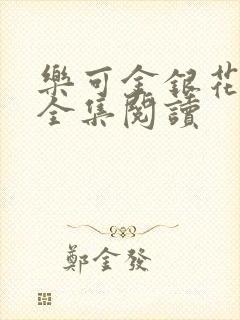 樂可金銀花
全集閱讀
鄭金發